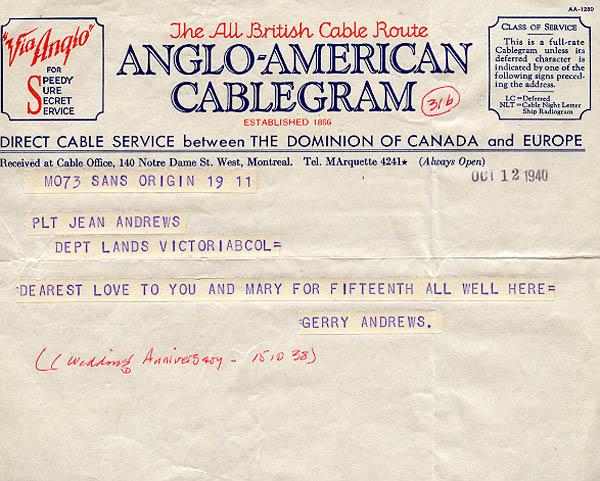 AA-1280
"Via Anglo"
FOR
SPEEDY
SURE
SECRET
SERVICE
The All British Cable Route
ANGLO-AMERICAN
CABLEGRAM
316
ESTABLISHED 1866
CLASS OF SERVICE
This is a full-rate
Cablegram unless its
deferred character is
indicated by one of the
following signs preced-
ing the address.
LC=Deferred
NLT=Cable Night Letter
Ship Radiogram
DIRECT CABLE SERVICE between THE DOMINION OF CANADA and EUROPE
Received at Cable Office, 140 Notre Dame St. West, Montreal. Tel. MArquette 4241★ (Always Open)
OCT 12 1940
MO73 SANS ORIGIN 19 11
PLT JEAN ANDREWS
DEPT LANDS VICTORIABCOL=
DEAREST LOVE TO YOU AND MARY FOR FIFTEENTH ALL WELL HERE=
:GERRY ANDREWS.
(( Wedding Anniversary - 15 10 38)